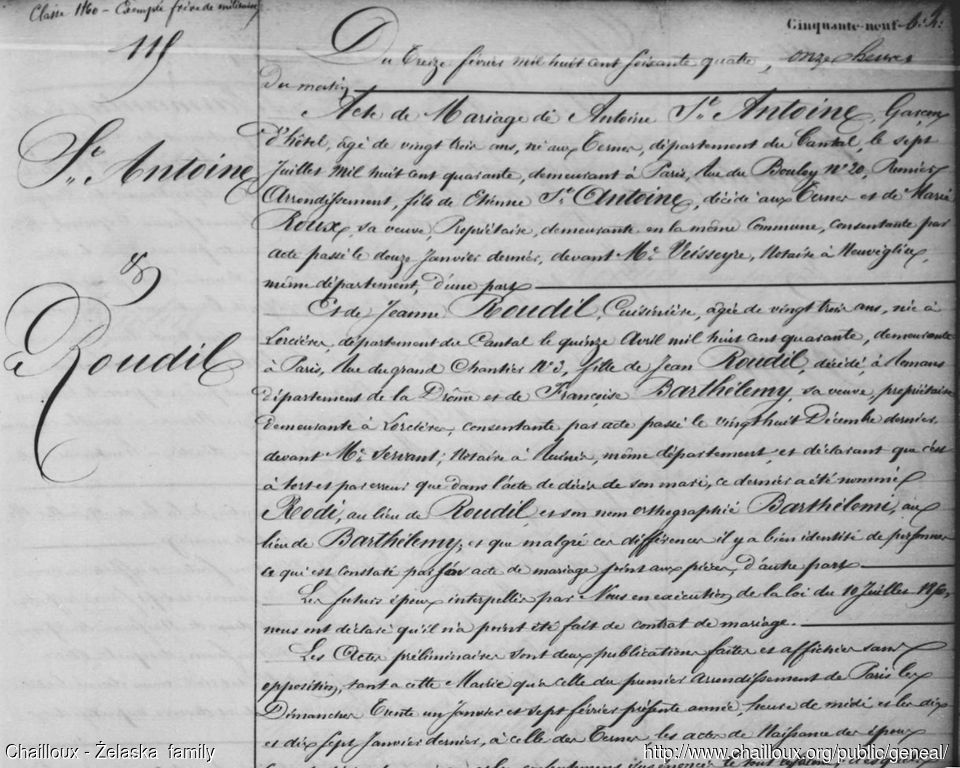 Classe 1860 - Exempté frère de militaire
Cinquante-neuf
115
Du treize février mil huit cent soixante quatre, onze heures
du matin
Acte de Mariage de Antoine St. Antoine, Garçon
d'hôtel, âgé de vingt trois ans, né aux Ternes, département du Cantal, le sept
St. Antoine
Juillet mil huit cent quarante, demeurant à Paris, Rue du Bouloy No 20, Premier
Arrondissement, fils de Etienne St. Antoine, décédé aux Ternes et de Marie
Roux, sa veuve, Propriétaire, demeurante en la même Commune, consentante par
acte passé le douze Janvier dernier, devant Me. Veisseyre, Notaire à Neuvéglise,
&
même département, d'une part
Et de Jeanne Roudil, Cuisinière, agée de vingt trois ans, née à
Lorcières, département du Cantal le quinze Avril mil huit cent quarante, demeurante
Roudil
à Paris, Rue du grand Chantier No 3, fille de Jean Roudil, décédé, à Romans
département de la Drôme et de Françoise Barthélemy, sa veuve, propriétaire
demeurante à Lorcières, consentante par acte passé le vingt huit Décembre dernier
devant Me. Servant, Notaire à Ruines, même département, et déclarant que c'est
à tort et par erreur que dans l'acte de décès de son mari, ce dernier a été nommé
Rodi, au lieu de Roudil et son nom orthographié Barthélemi, au
lieu de Barthélemy, et que malgré ces différences il y a bien identité de personnes
ce qui est constaté par son acte de mariage joint aux pièces, d'autre part
Les futurs époux interpellés par Nous en exécution de la loi du 10 Juillet 1850,
nous ont déclaré qu'il n'a point été fait de contrat de mariage.
Les Actes préliminaires sont deux publications faites et affichées sans
opposition, tant à cette Mairie qu'à celle du premier arrondissement de Paris les
Dimanches trente un Janvier et sept février présente année, heure de midi et les dix
et dix sept Janvier dernier, à celle des Ternes les actes de Naissance des époux
Chailloux - Żelaska family
http://www.chailloux.org/public/geneal/